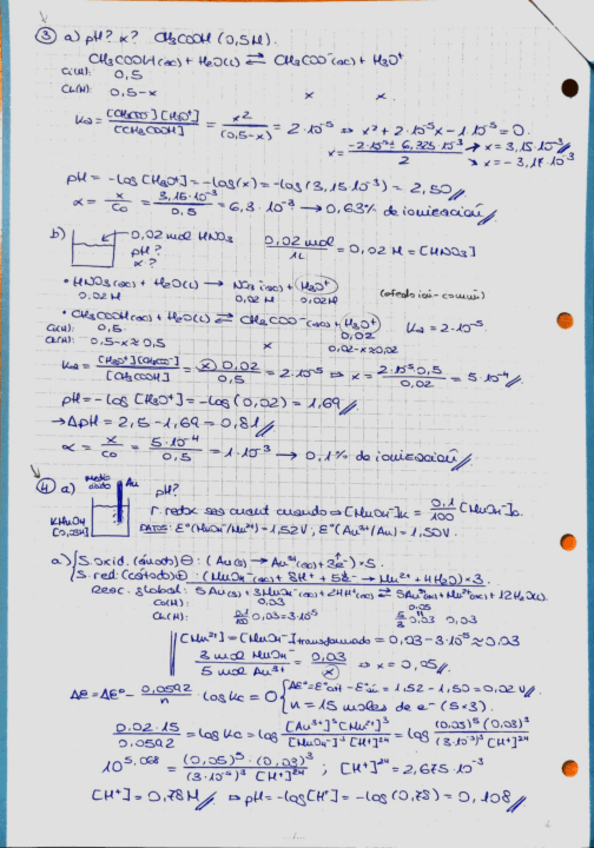 ③ a) pH? α? CH₃COOH (0,5M).
CH₃COOH(ac) + H₂O(l) ⇄ CH₃COO⁻(ac) + H₃O⁺
Ci(M): 0,5
Ceq(M): 0,5-x x x
Ka = [CH₃COO⁻][H₃O⁺] / [CH₃COOH] = x² / (0,5-x) = 2·10⁻⁵ ⇒ x² + 2·10⁻⁵x - 1·10⁻⁵ = 0.
x = -2·10⁻⁵ ± 6,325·10⁻³ / 2 → x = 3,15·10⁻³
→ x = -3,17·10⁻³
pH = -log [H₃O⁺] = -log(x) = -log(3,15·10⁻³) = 2,50
α = x / Co = 3,15·10⁻³ / 0,5 = 6,3·10⁻³ → 0,63% de ionización
b) 0,02 mol HNO₃ 0,02 mol / 1L = 0,02 M = [HNO₃]
pH?
α?
• HNO₃(ac) + H₂O(l) → NO₃⁻(ac) + H₃O⁺ (efecto ion-común)
0,02M 0,02M 0,02M
• CH₃COOH(ac) + H₂O(l) ⇄ CH₃COO⁻(ac) + H₃O⁺ Ka = 2·10⁻⁵
Ci(M): 0,5 0,02
Ceq(M): 0,5-x≈0,5 x 0,02-x≈0,02
Ka = [H₃O⁺][CH₃COO⁻] / [CH₃COOH] = x 0,02 / 0,5 = 2·10⁻⁵ ⇒ x = 2·10⁻⁵·0,5 / 0,02 = 5·10⁻⁴
pH = -log [H₃O⁺] = -log(0,02) = 1,69
→ ΔpH = 2,5 - 1,69 = 0,81
α = x / Co = 5·10⁻⁴ / 0,5 = 1·10⁻³ → 0,1% de ionización
④ a) Medio ácido Au pH?
r. redox será cuant cuando ⇒ [MnO₄⁻]eq = 0,1 / 100 [MnO₄⁻]o.
KMnO₄ [0,03M] DATOS: E°(MnO₄⁻/Mn²⁺) = 1,52V; E°(Au³⁺/Au) = 1,50V.
a) S. oxid. (ánodo) ⊖: (Au(s) → Au³⁺(ac) + 3e⁻)×5.
S. red. (cátodo) ⊕: (MnO₄⁻(ac) + 8H⁺ + 5e⁻ → Mn²⁺ + 4H₂O)×3.
Reac. global: 5Au(s) + 3MnO₄⁻(ac) + 24H⁺(ac) ⇄ 5Au³⁺(ac) + Mn²⁺(ac) + 12H₂O(l).
Co(M): 0,03 0,05
Ceq(M): 0,1/100 0,03 = 3·10⁻⁵ 5/3 0,03 0,03
[Mn²⁺] = [MnO₄⁻] transformado = 0,03 - 3·10⁻⁵ ≈ 0,03
3 mol MnO₄⁻ / 5 mol Au³⁺ = 0,03 / x ⇒ x = 0,05
ΔE = ΔE° - 0,0592 / n · log Kc = 0 { ΔE° = E°cát - E°án = 1,52 - 1,50 = 0,02 V
n = 15 moles de e⁻ (5×3).
0,02·15 / 0,0592 = log Kc = log [Au³⁺]⁵[Mn²⁺]³ / [MnO₄⁻]³[H⁺]²⁴ = log (0,05)⁵(0,03)³ / (3·10⁻⁵)³[H⁺]²⁴
10^5,068 = (0,05)⁵·(0,03)³ / (3·10⁻⁵)³ [H⁺]²⁴ ; [H⁺]²⁴ = 2,675·10⁻³
[H⁺] = 0,78M ⇒ pH = -log[H⁺] = -log(0,78) = 0,108